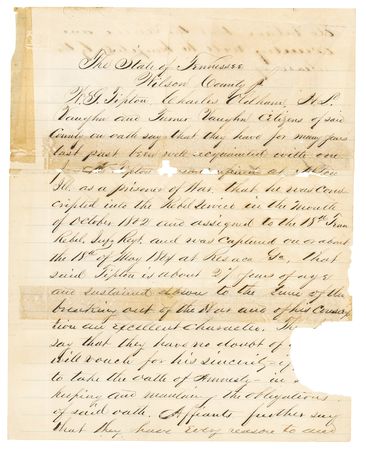 The State of Tennessee
Wilson County
R. G. Tipton, Charles Oldham, H. L.
Vaughn and Turner Vaughn Citizens of said
County on oath say that they have for many years
last past been well acquainted with one
Tipton now confined at Alton
Ill. as a prisoner of War, that he was Cons
cripted into the Rebel service in the month
of October 1862 and assigned to the 18th Tenn
Rebel Inf. Regt and was captured on or about
the 18th of May 1864 at Resaca Ga, that
said Tipton is about 27 years of age
and sustained down to the time of the
breaking out of the War and of his Conscrip
tion an excellent character. The
say that they have no doubt of
will vouch for his sincerity
to take the oath of Amnesty in
keeping and maintaining the obligations
of said oath. Affiants further say
that they have every reason to and